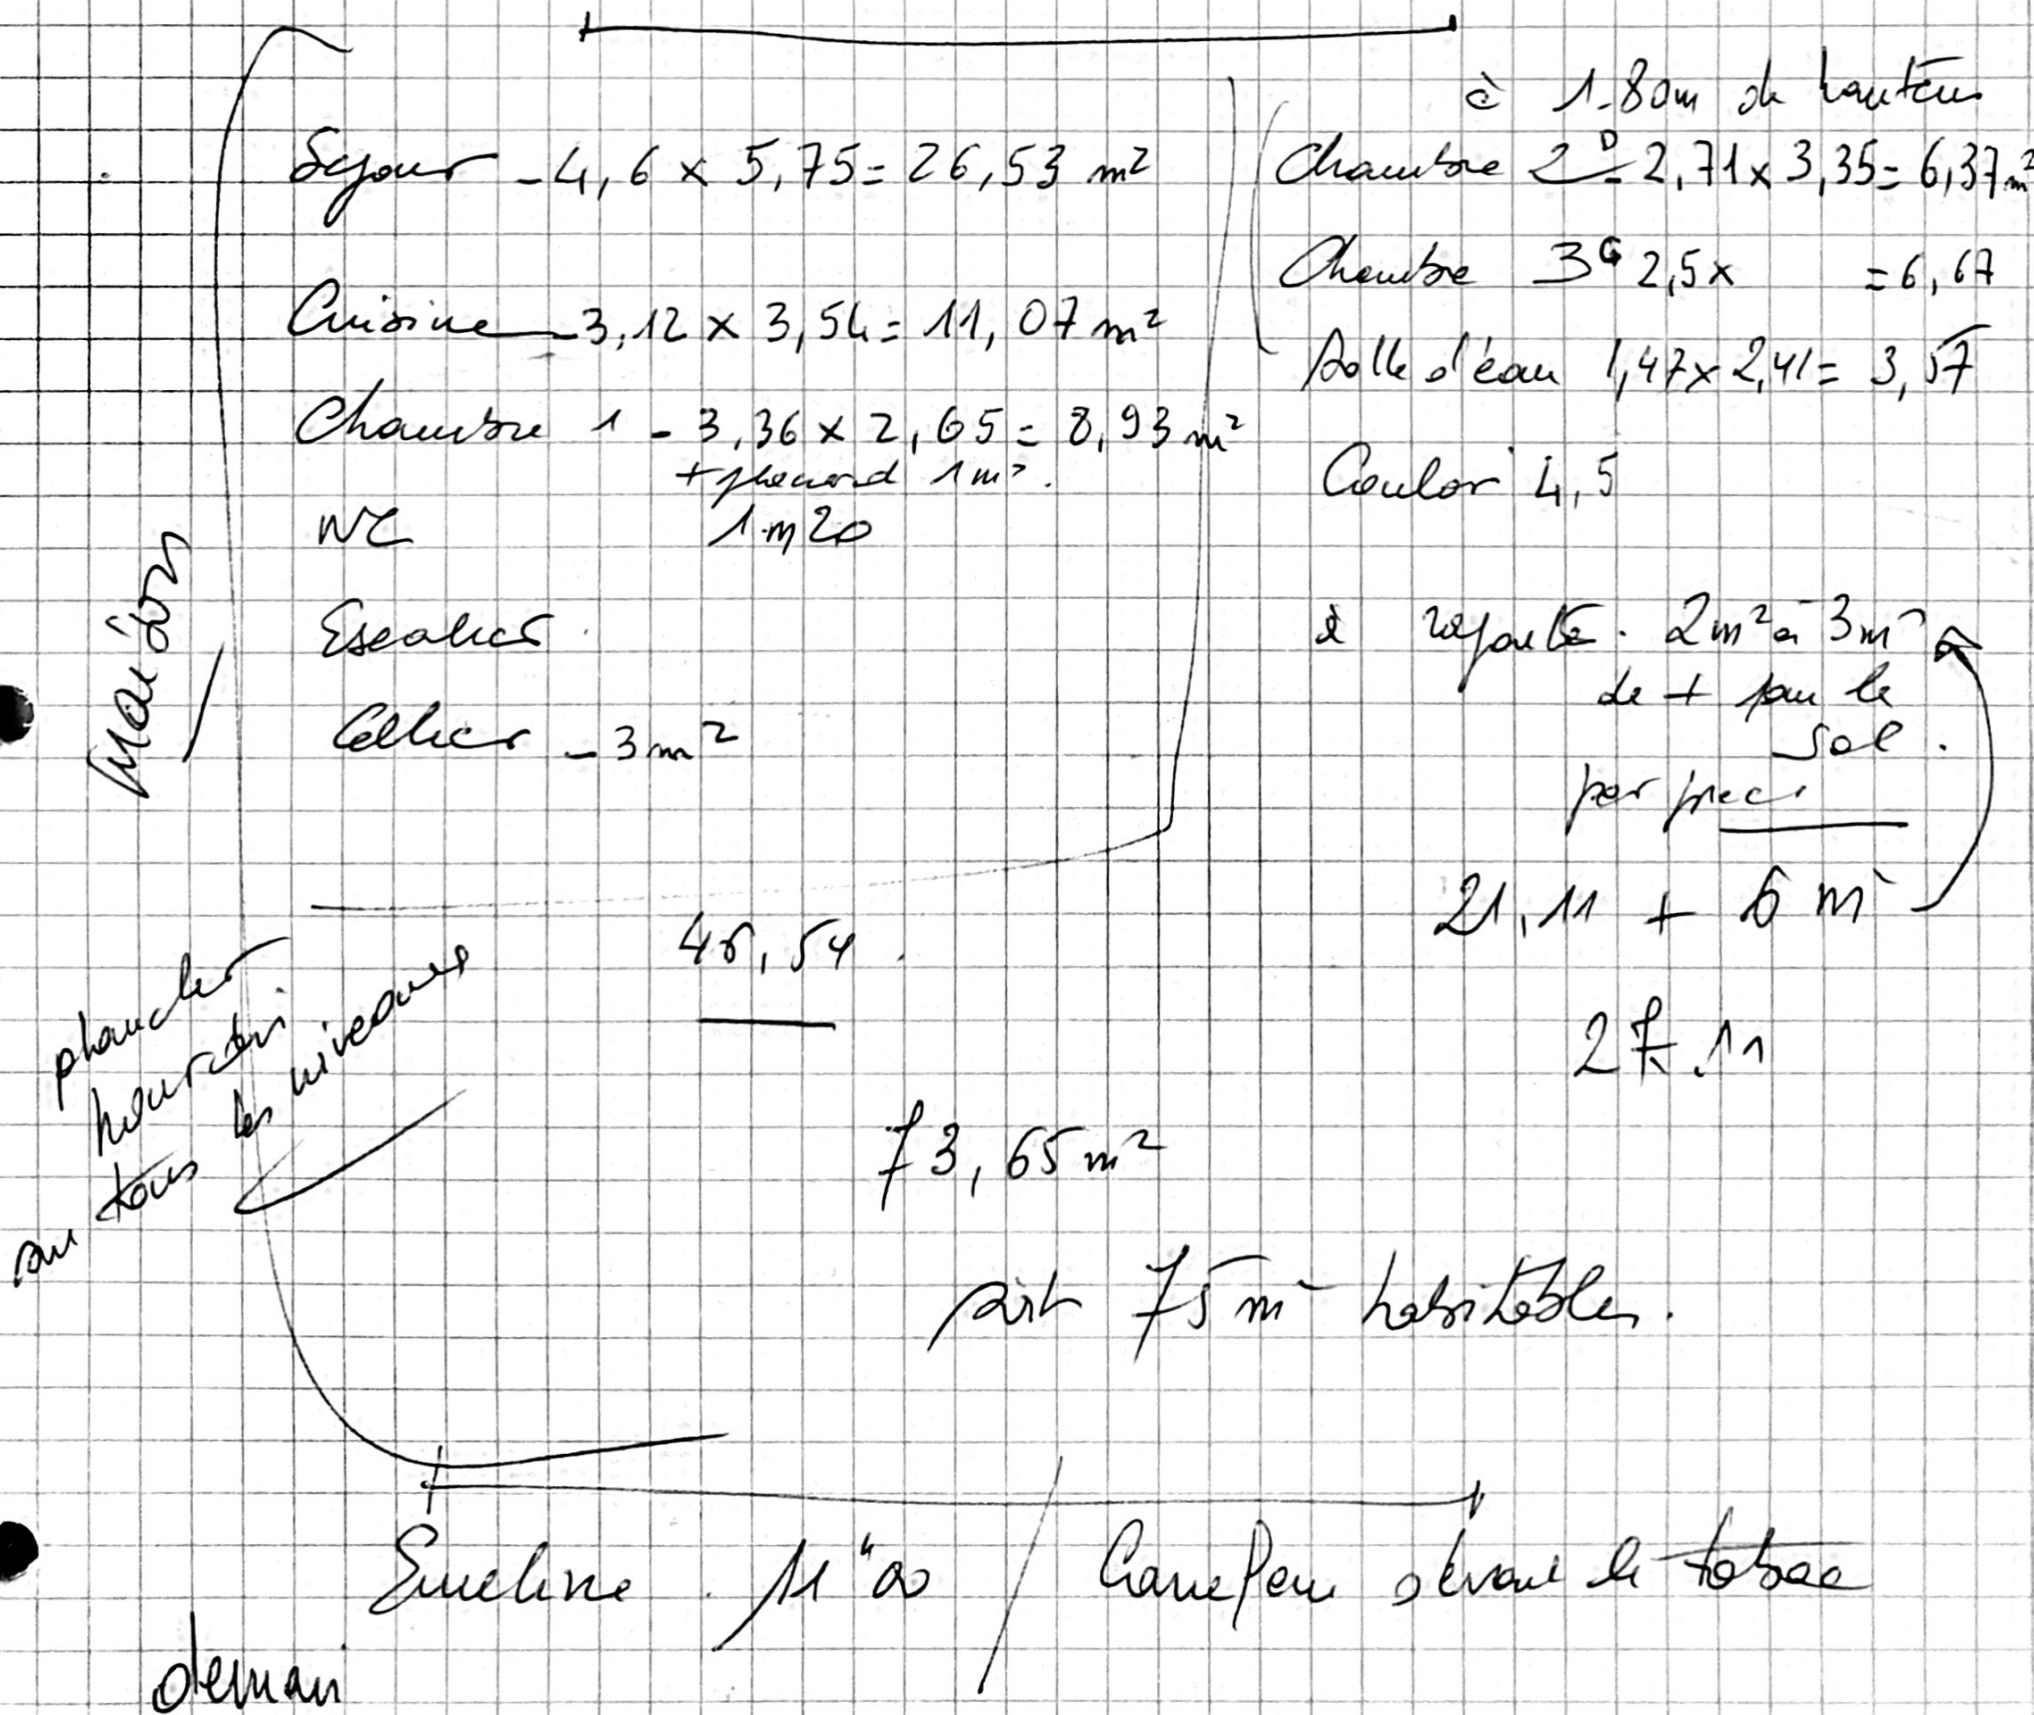 Séjour - 4,6 x 5,75 = 26,53 m²
Cuisine - 3,12 x 3,54 = 11,07 m²
Chambre 1 - 3,36 x 2,65 = 8,93 m²
+ placard 1 m².
WC 1 m 20
Escalier
Cellier - 3 m²
46,54
à 1.80m de hauteur
Chambre 2 D - 2,71 x 3,35 = 6,37 m²
Chambre 3 G 2,5 x = 6,67
Salle d'eau 1,47 x 2,41 = 3,57
Couloir 4,5
à rajouter. 2 m² à 3 m²
de + par le
sol.
par pièce
21,11 + 6 m²
27.11
73,65 m²
soit 75 m² habitables.
Maison
plancher
hourdis
sur tous les niveaux
Emeline. 11"00 / Carrefour devant le tabac
demain